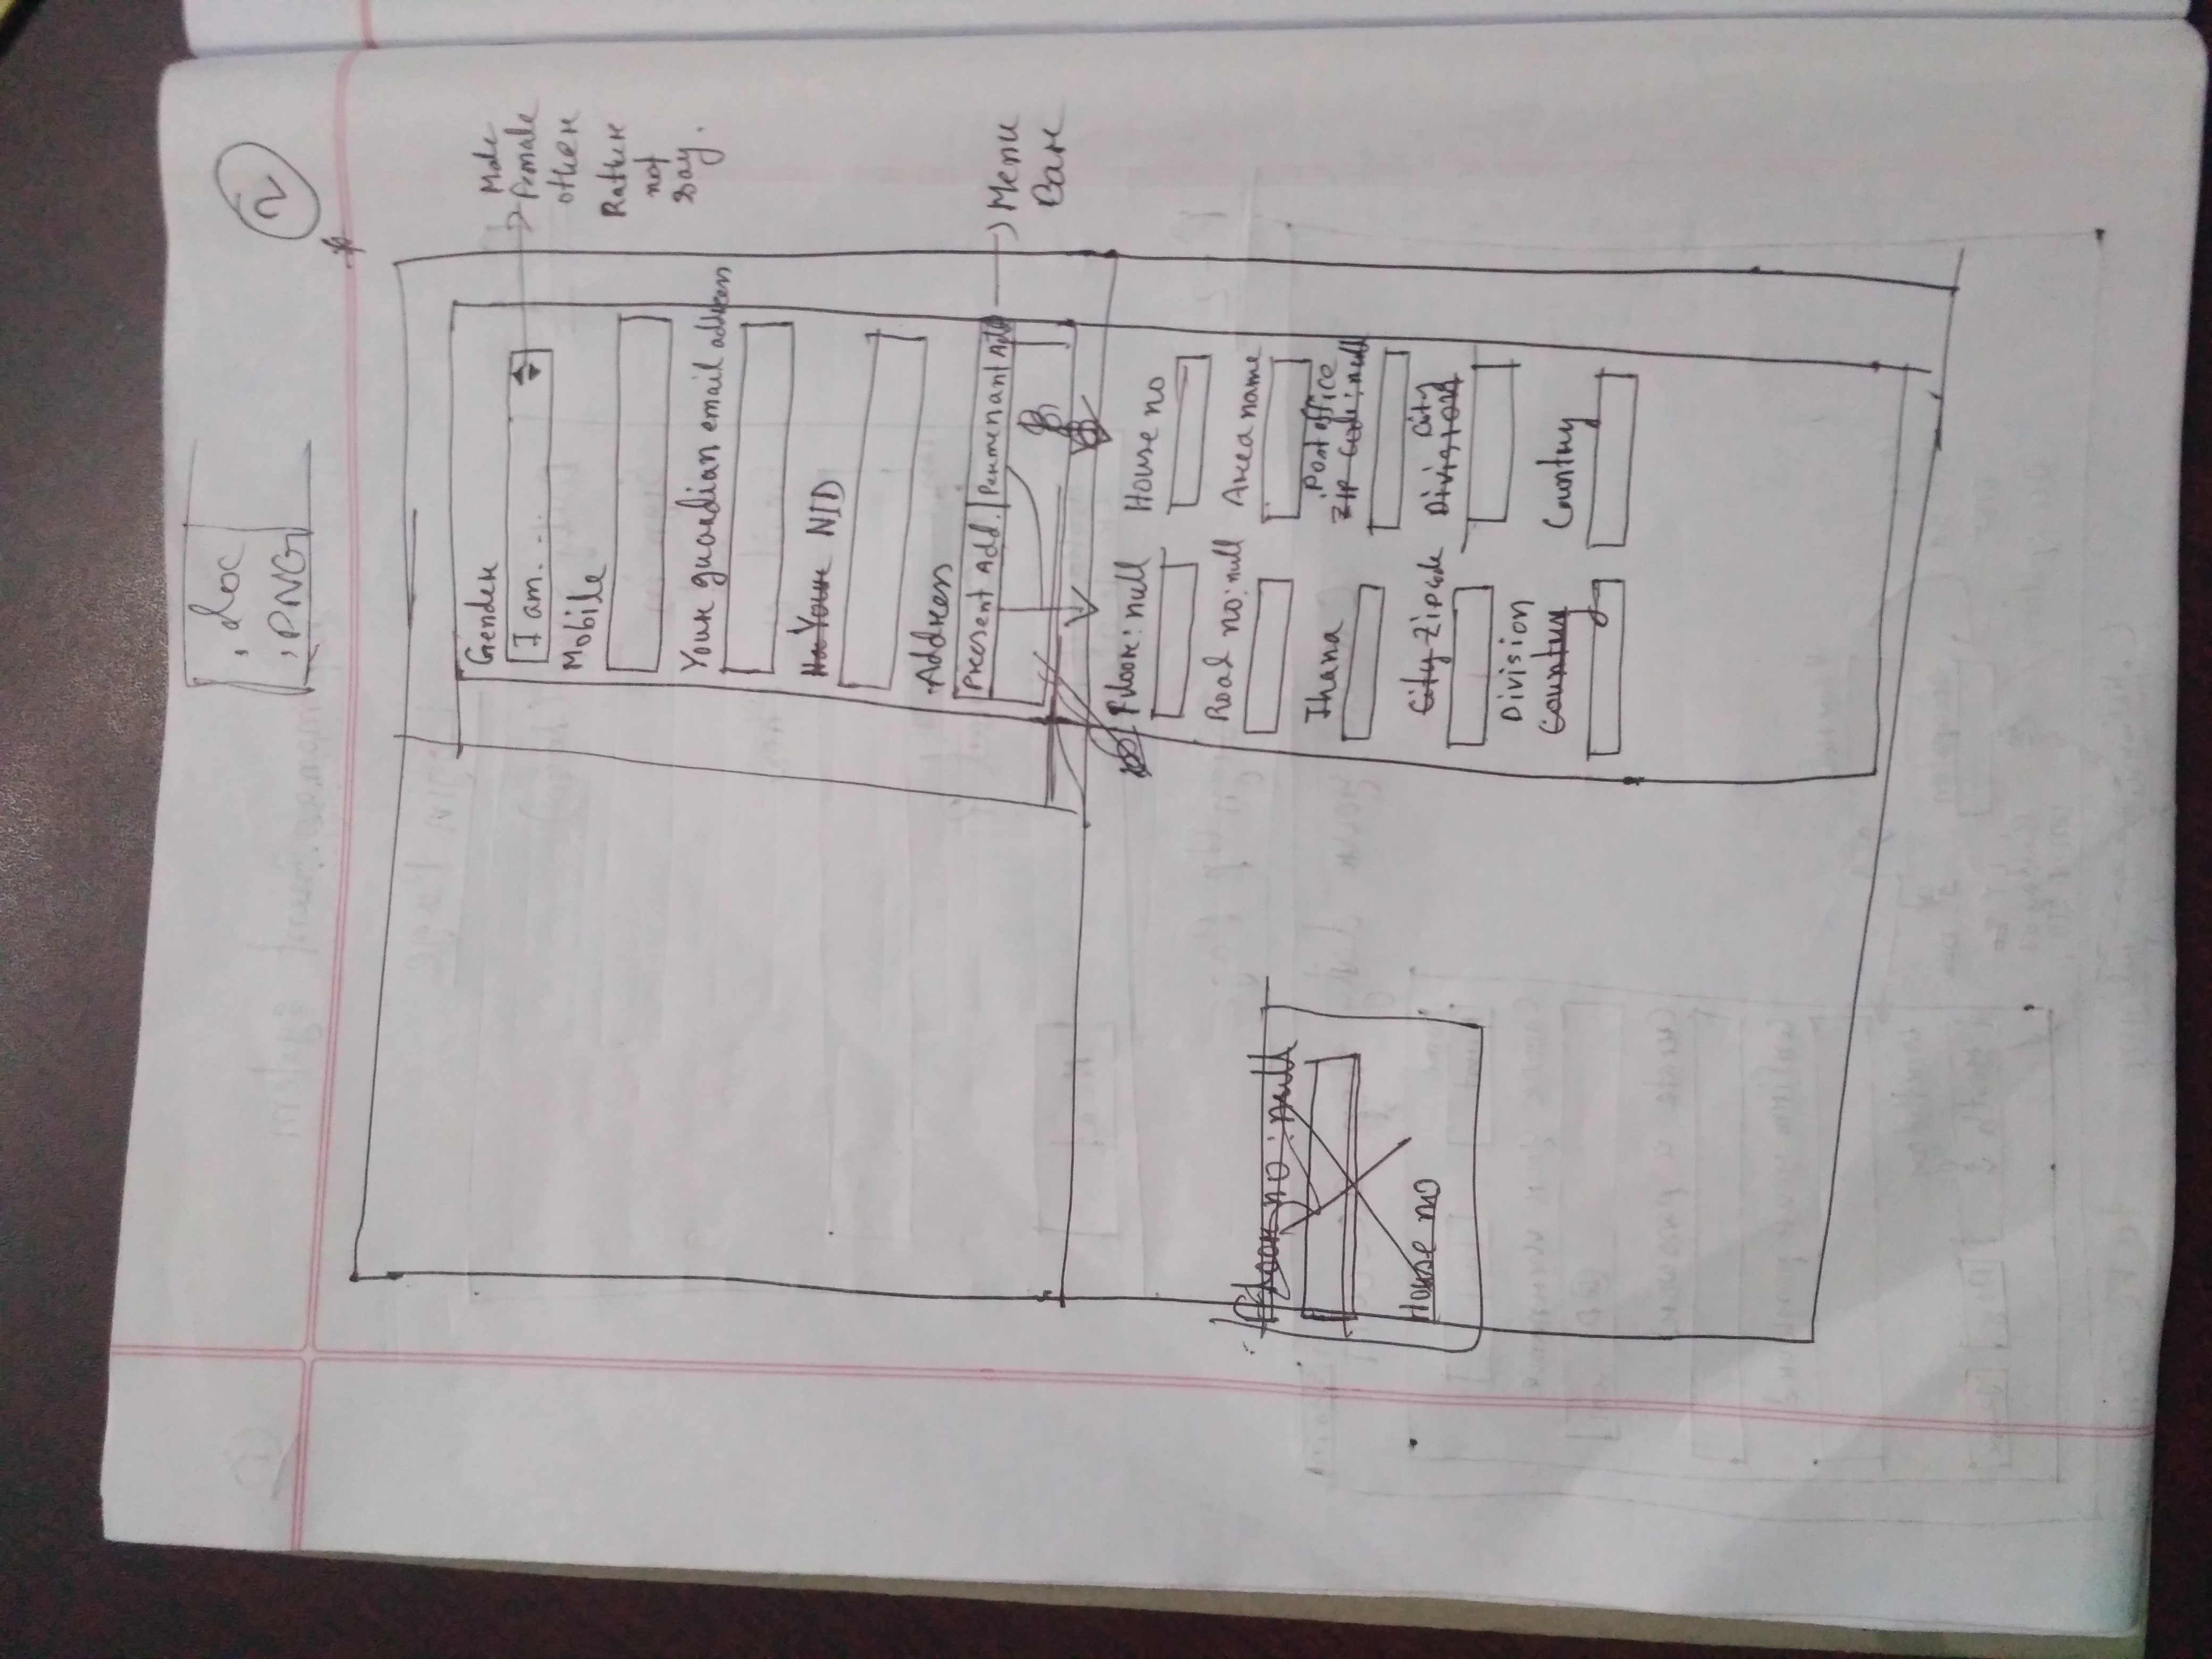 .doc
.PNG
2
Gender
I am...
Male
Female
other
Rather
not
say.
Mobile
Your guardian email address
Your NID
Address
Present Add. Permenant Add
Menu
Bar
Floor: null House no
Road no: null Area name
Thana Post office
ZIP Code: null
City Zip code City
Division
Division
Country Country
Floor no: null
House no